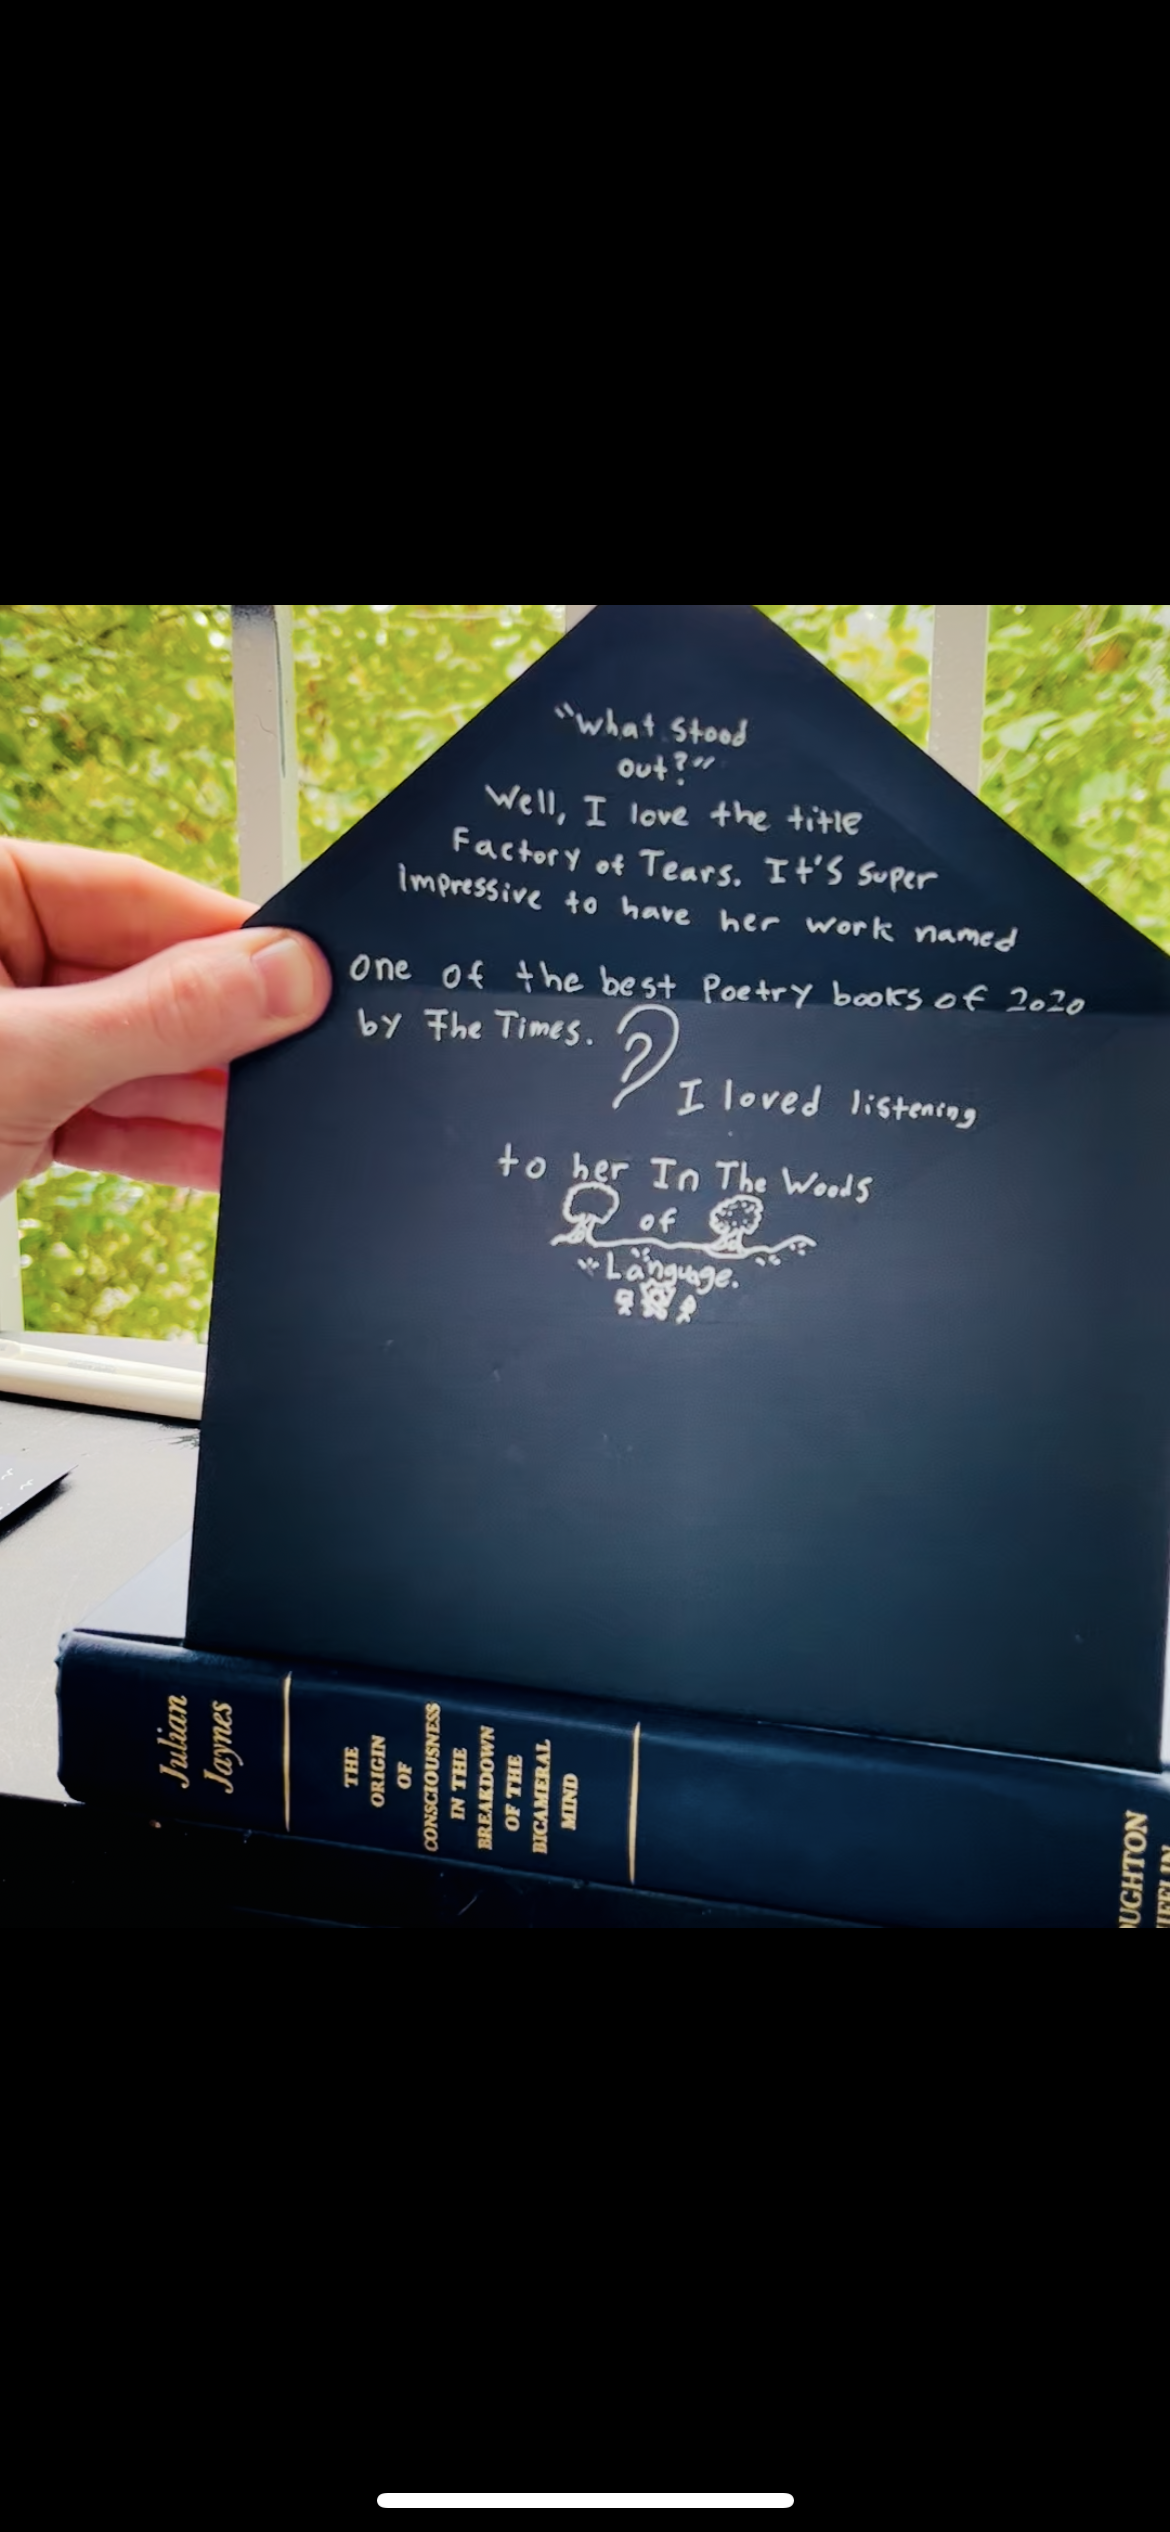 "What stood
out?"
Well, I love the title
Factory of Tears. It's super
impressive to have her work named
one of the best Poetry books of 2020
by The Times.
I loved listening
to her In The Woods
of
Language.
Julian
Jaynes
THE
ORIGIN
OF
CONSCIOUSNESS
IN THE
BREAKDOWN
OF THE
BICAMERAL
MIND
OUGHTON